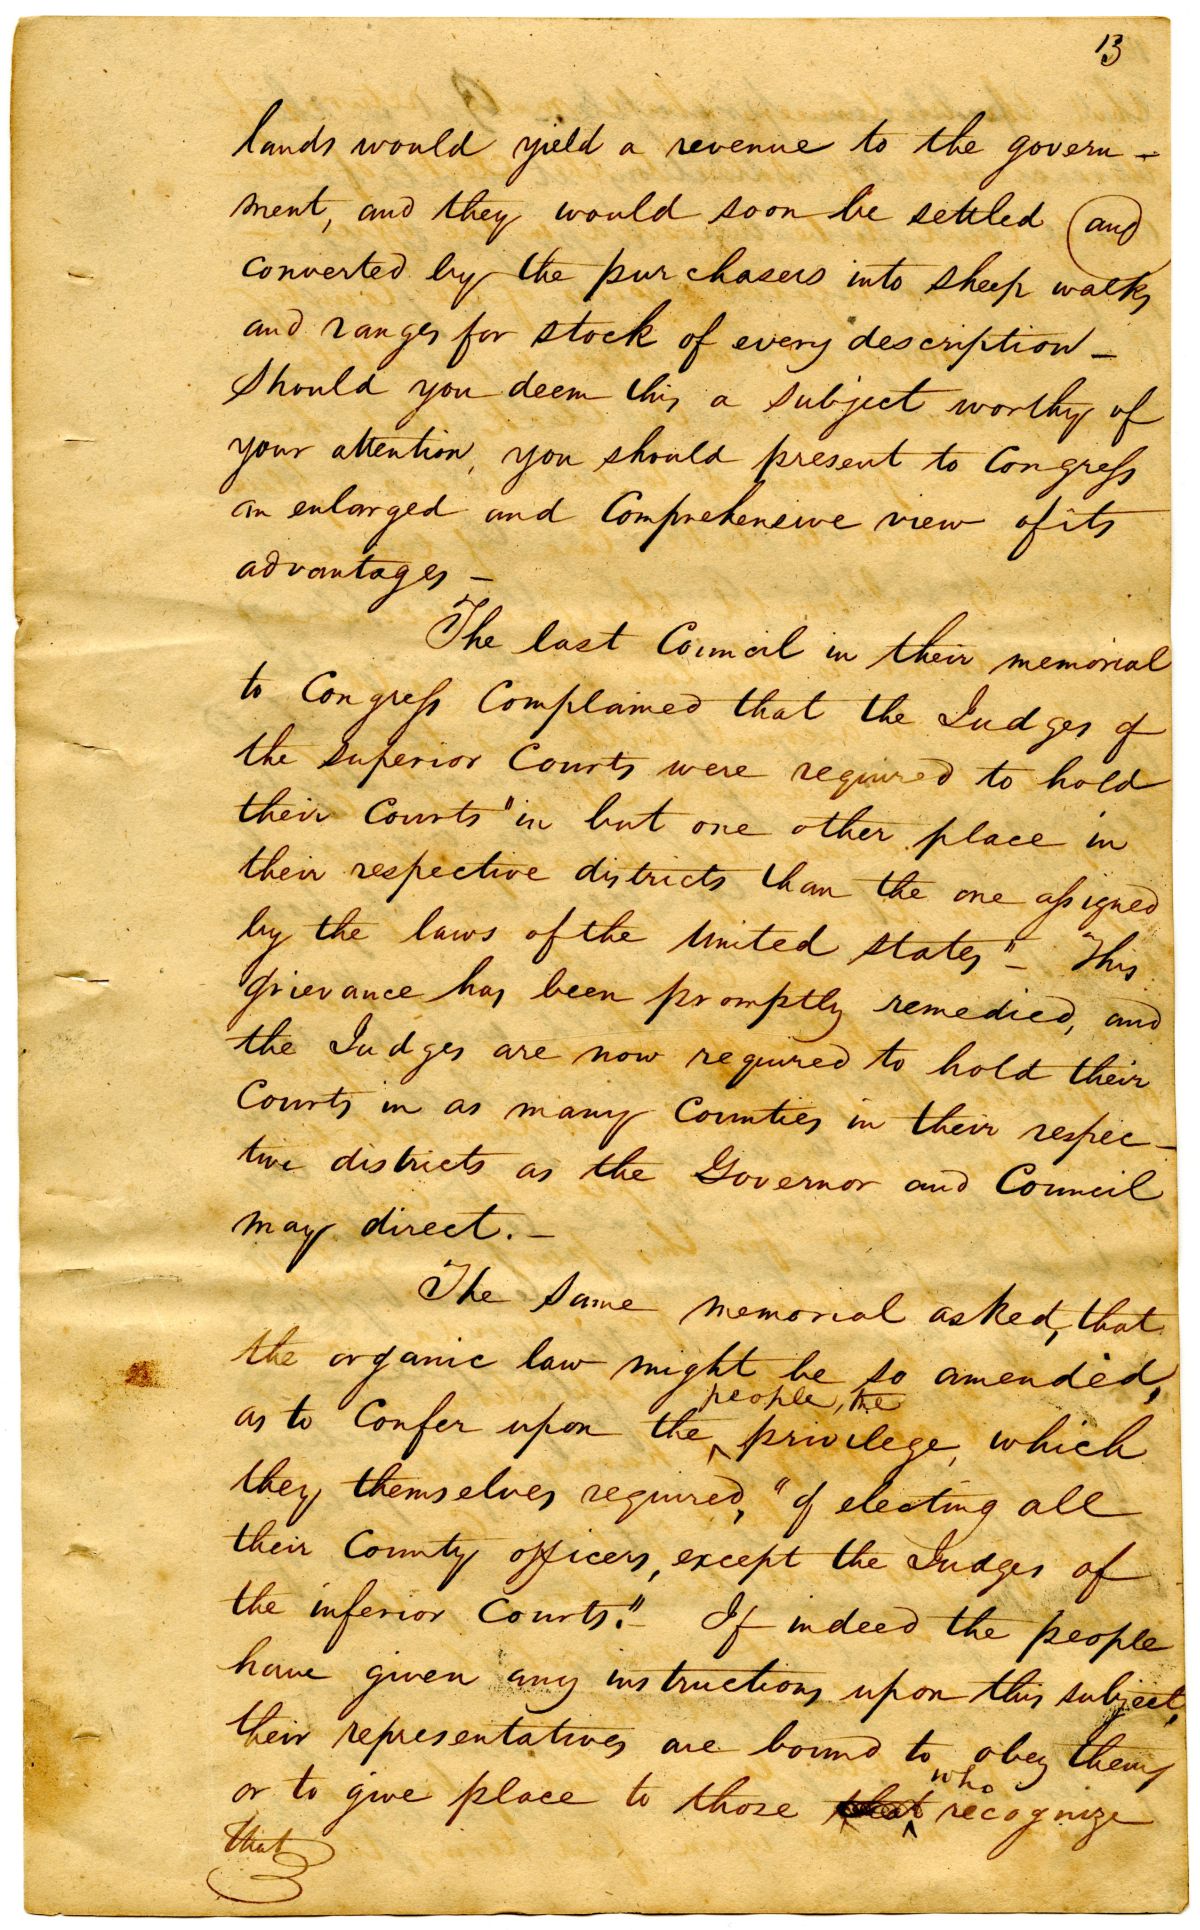 13
lands would yield a revenue to the govern-
ment, and they would soon be settled and
converted by the purchasers into sheep walks
and ranges for stock of every description_
Should you deem this a subject worthy of
your attention, you should present to Congress
an enlarged and Comprehensive view of its
advantages_
The last Council in their memorial
to Congress Complained that the Judges of
the superior Courts were required to hold
their Courts "in but one other place in
their respective districts than the one assigned
by the laws of the United States"_ This
grievance has been promptly remedied, and
the Judges are now required to hold their
Courts in as many Counties in their respec-
tive districts as the Governor and Council
may direct._
The same memorial asked, that
the organic law might be so amended,
people, the
as to Confer upon the ^ privilege, which
they themselves required, "of electing all
their County officers, except the Judges of
the inferior Courts."_ If indeed the people
have given any instructions upon this subject,
their representatives are bound to obey them,
who
or to give place to those that ^ recognize
that